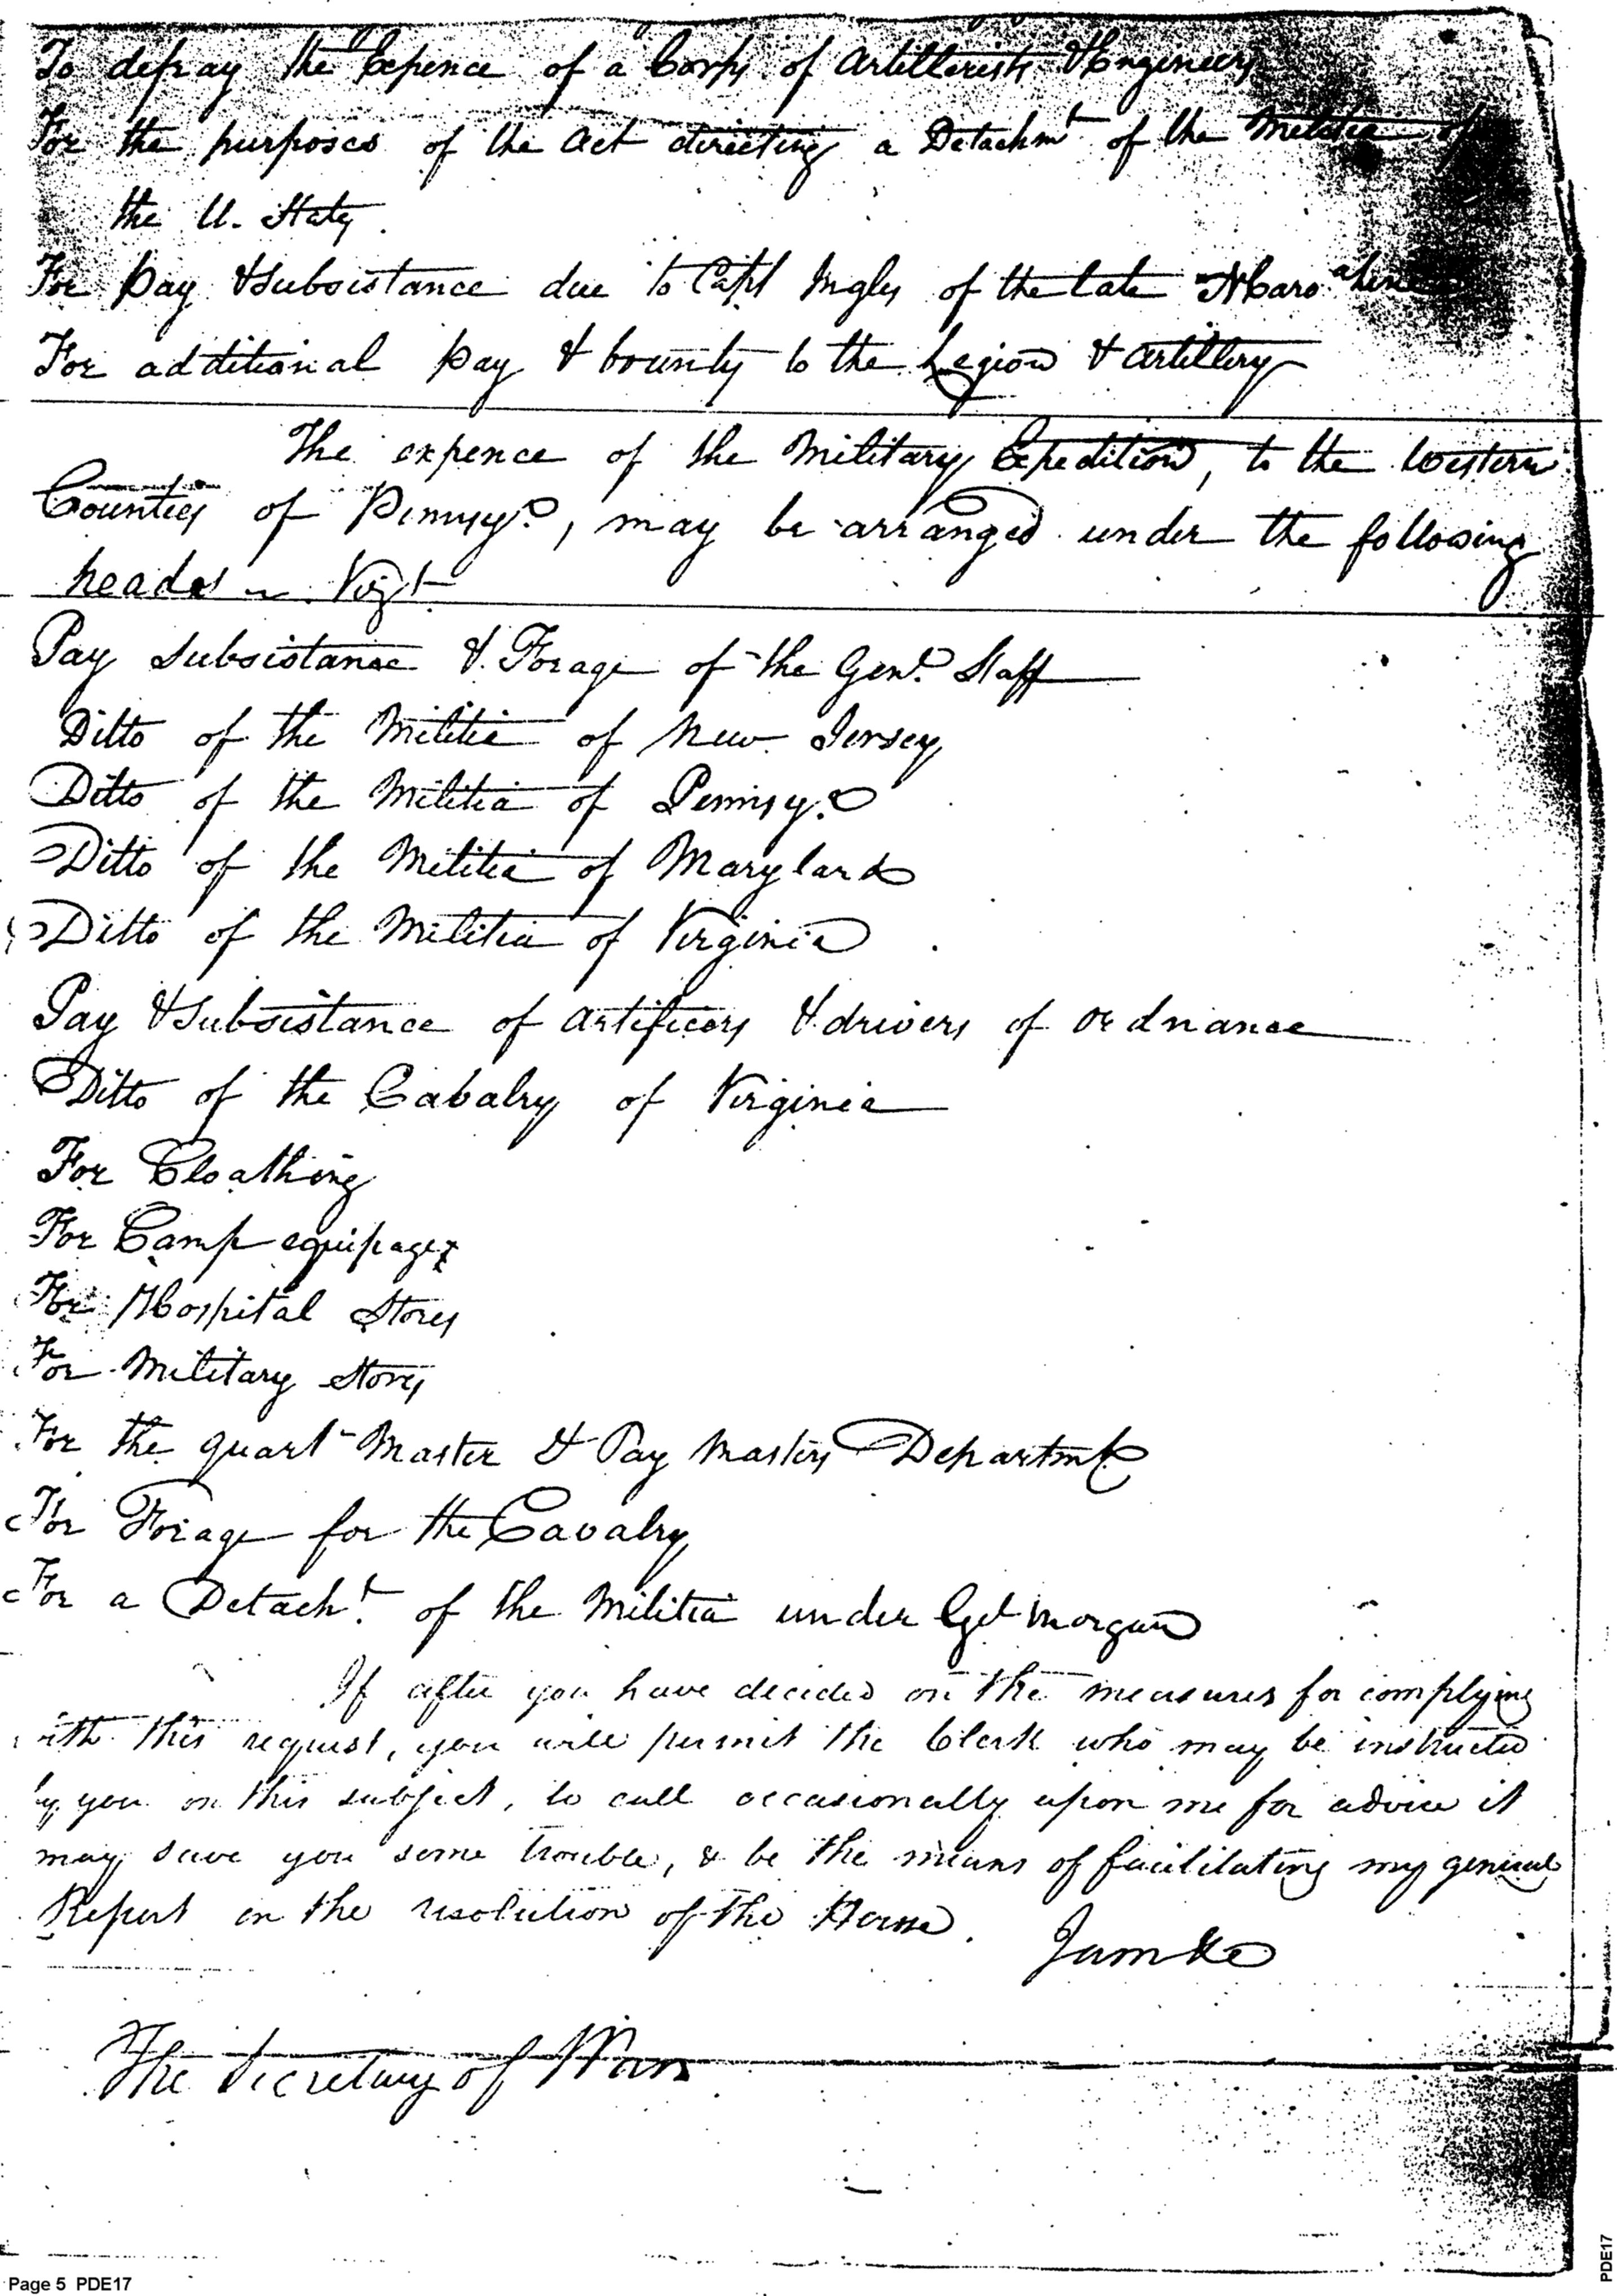 To defray the Expence of a Corps of Artillerists & Engineers
For the purposes of the Act directing a Detachmt of the Militia of
the U. States
For Pay & Subsistance due to Capt Ingles of the late N Caroa line
For additional pay & bounty to the Legion & Artillery
The expence of the Military Expedition, to the Western
Counties of Pennsya, may be arranged under the following
heads Vizt
Pay Subsistance & Forage of the Genl Staff
Ditto of the Militia of New Jersey
Ditto of the Militia of Pennsya
Ditto of the Militia of Maryland
Ditto of the Militia of Virginia
Pay & Subsistance of Artificers & drivers of Ordnance
Ditto of the Cabalry of Virginia
For Cloathing
For Camp equipage
For Hospital Stores
For Military Stores
For the quartr Master & Pay Masters Departmt
For Forage for the Cavalry
For a Detacht of the Militia under Gel Morgan
If after you have decided on the measures for complying
with this request, you will permit the Clerk who may be instructed
by you on this subject, to call occasionally upon me for advice it
may save you some trouble, & be the means of facilitating my general
Report on the resolution of the House.
The Secretary of War
Page 5 PDE17
PDE17